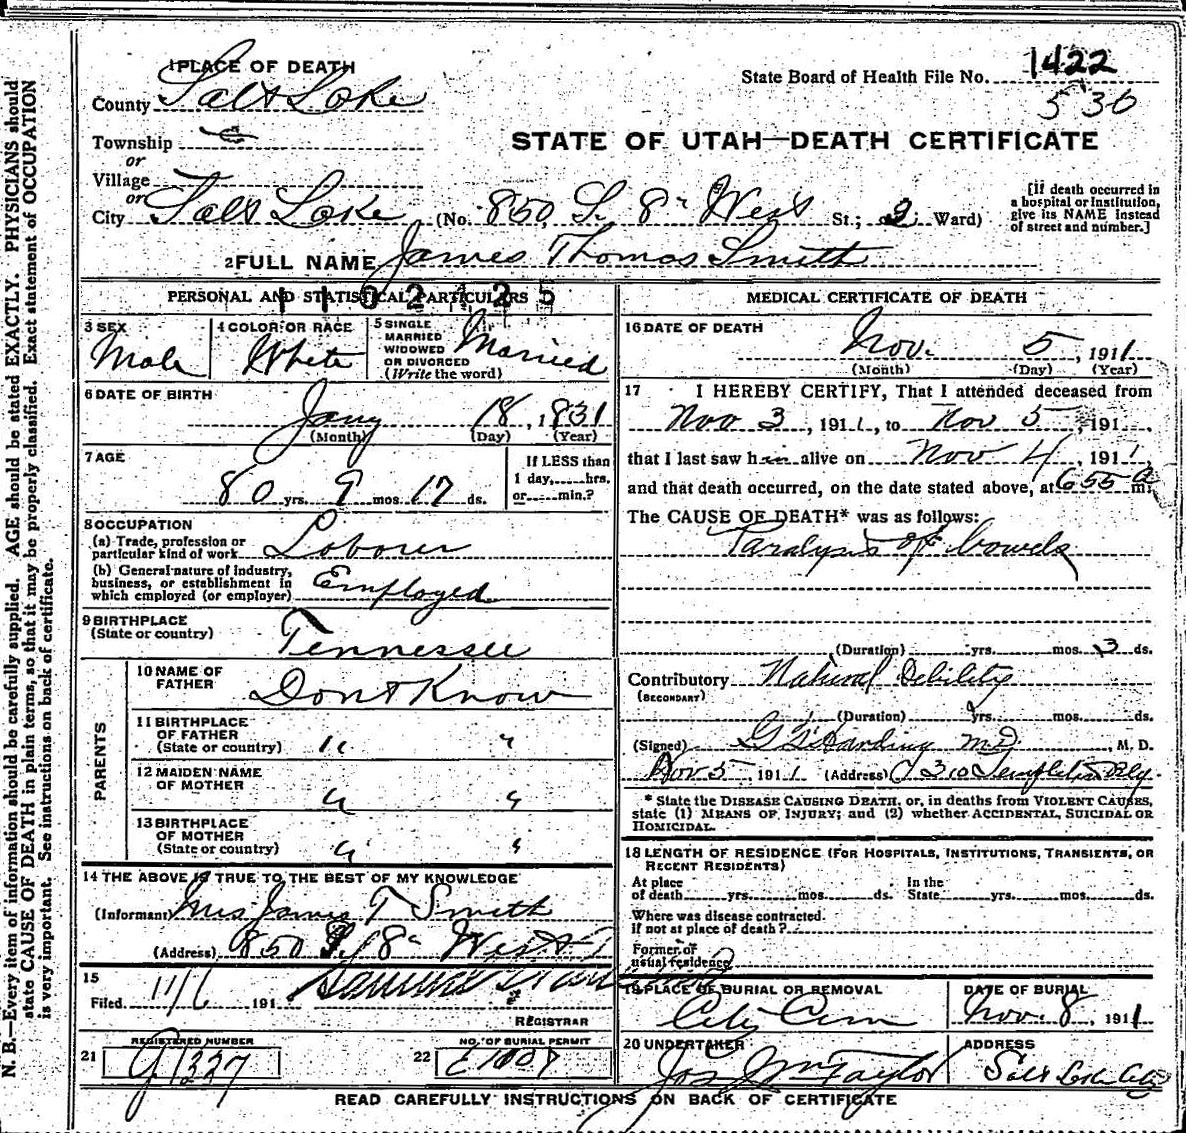 N. B.—Every item of information should be carefully supplied. AGE should be stated EXACTLY. PHYSICIANS should
state CAUSE OF DEATH in plain terms, so that it may be properly classified. Exact statement of OCCUPATION
is very important. See instructions on back of certificate.
1 PLACE OF DEATH
County Salt Lake
Township
or
Village
or
City Salt Lake (No. 850 S. 8" West St.; 2 Ward)
State Board of Health File No. 1422
530
STATE OF UTAH—DEATH CERTIFICATE
[If death occurred in
a hospital or institution,
give its NAME instead
of street and number.]
2 FULL NAME James Thomas Smith
PERSONAL AND STATISTICAL PARTICULARS
3 SEX Male
4 COLOR OR RACE White
5 SINGLE
MARRIED
WIDOWED
OR DIVORCED
(Write the word) Married
6 DATE OF BIRTH Jany 18, 1831
(Month) (Day) (Year)
7 AGE 80 yrs. 9 mos. 17 ds.
If LESS than
1 day,......hrs.
or......min.?
8 OCCUPATION
(a) Trade, profession or
particular kind of work Laborer
(b) General nature of industry,
business, or establishment in
which employed (or employer) Employed
9 BIRTHPLACE
(State or country) Tennessee
PARENTS
10 NAME OF
FATHER Dont Know
11 BIRTHPLACE
OF FATHER
(State or country) " "
12 MAIDEN NAME
OF MOTHER " "
13 BIRTHPLACE
OF MOTHER
(State or country) " "
14 THE ABOVE IS TRUE TO THE BEST OF MY KNOWLEDGE
(Informant) Mrs James T Smith
(Address) 850 S. 8" West
15
Filed 11/6 191
REGISTRAR
21 REGISTERED NUMBER
G1327
22 NO. OF BURIAL PERMIT
MEDICAL CERTIFICATE OF DEATH
16 DATE OF DEATH
Nov. 5, 1911
(Month) (Day) (Year)
17 I HEREBY CERTIFY, That I attended deceased from
Nov 3, 1911, to Nov 5, 191
that I last saw him alive on Nov 4, 1911,
and that death occurred, on the date stated above, at 6 55 a m.
The CAUSE OF DEATH* was as follows:
Paralysis of bowels
(Duration) yrs. mos. 3 ds.
Contributory Natural Debility
(SECONDARY)
(Duration) yrs. mos. ds.
(Signed) Harding M.D, M. D.
Nov 5, 1911 (Address) 310 Templeton Bldg.
* State the DISEASE CAUSING DEATH, or, in deaths from VIOLENT CAUSES,
state (1) MEANS OF INJURY; and (2) whether ACCIDENTAL, SUICIDAL OR
HOMICIDAL.
18 LENGTH OF RESIDENCE (FOR HOSPITALS, INSTITUTIONS, TRANSIENTS, OR
RECENT RESIDENTS)
At place
of death yrs. mos. ds.
In the
State yrs. mos. ds.
Where was disease contracted.
If not at place of death?
Former or
usual residence
19 PLACE OF BURIAL OR REMOVAL
City Cem
DATE OF BURIAL
Nov. 8, 1911
20 UNDERTAKER
Jos Wm Taylor
ADDRESS
Salt Lake City
READ CAREFULLY INSTRUCTIONS ON BACK OF CERTIFICATE